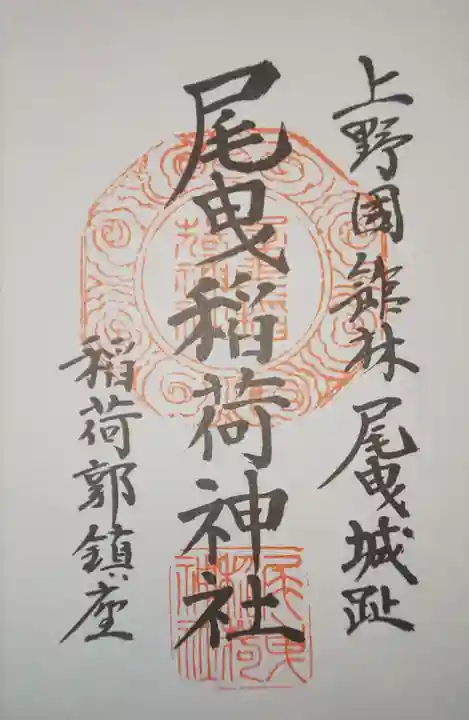 上野国舘林尾曳城趾
尾曳稲荷神社
稲荷郭鎮座
尾曳稲荷神社